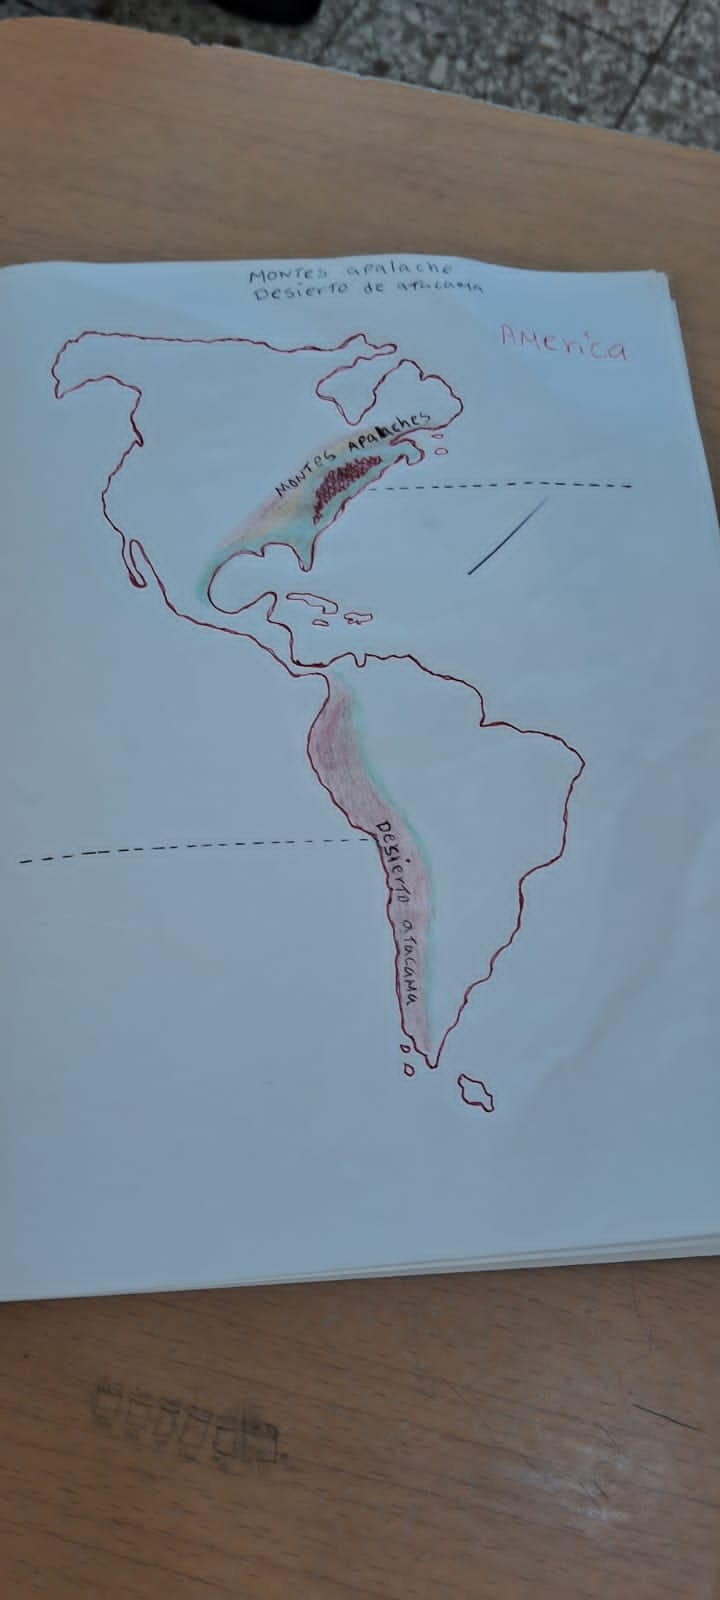 Montes apalache
Desierto de atacama
America
Montes Apalaches
Desierto atacama